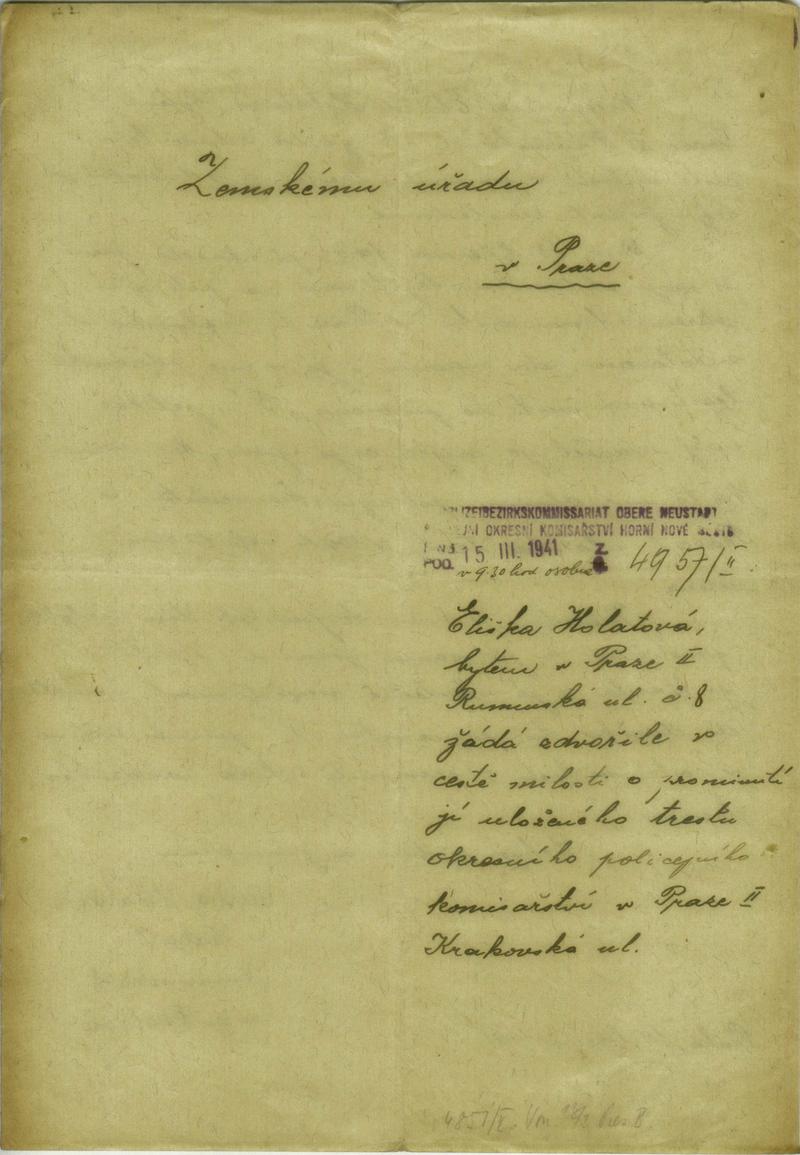 Zemskému úřadu
v Praze
POLIZEIBEZIRKSKOMMISSARIAT OBERE NEUSTADT
OKRESNÍ KOMISAŘSTVÍ HORNÍ NOVÉ MĚSTO
POD. 15 III. 1941 Z. 4957/II.
v 9.30 hod osobně
Eliška Holatová,
bytem v Praze II
Rumunská ul. č. 8
žádá zdvořile v
cestě milosti o prominutí
jí uloženého trestu
okresního policejního
komisařství v Praze II
Krakovská ul.